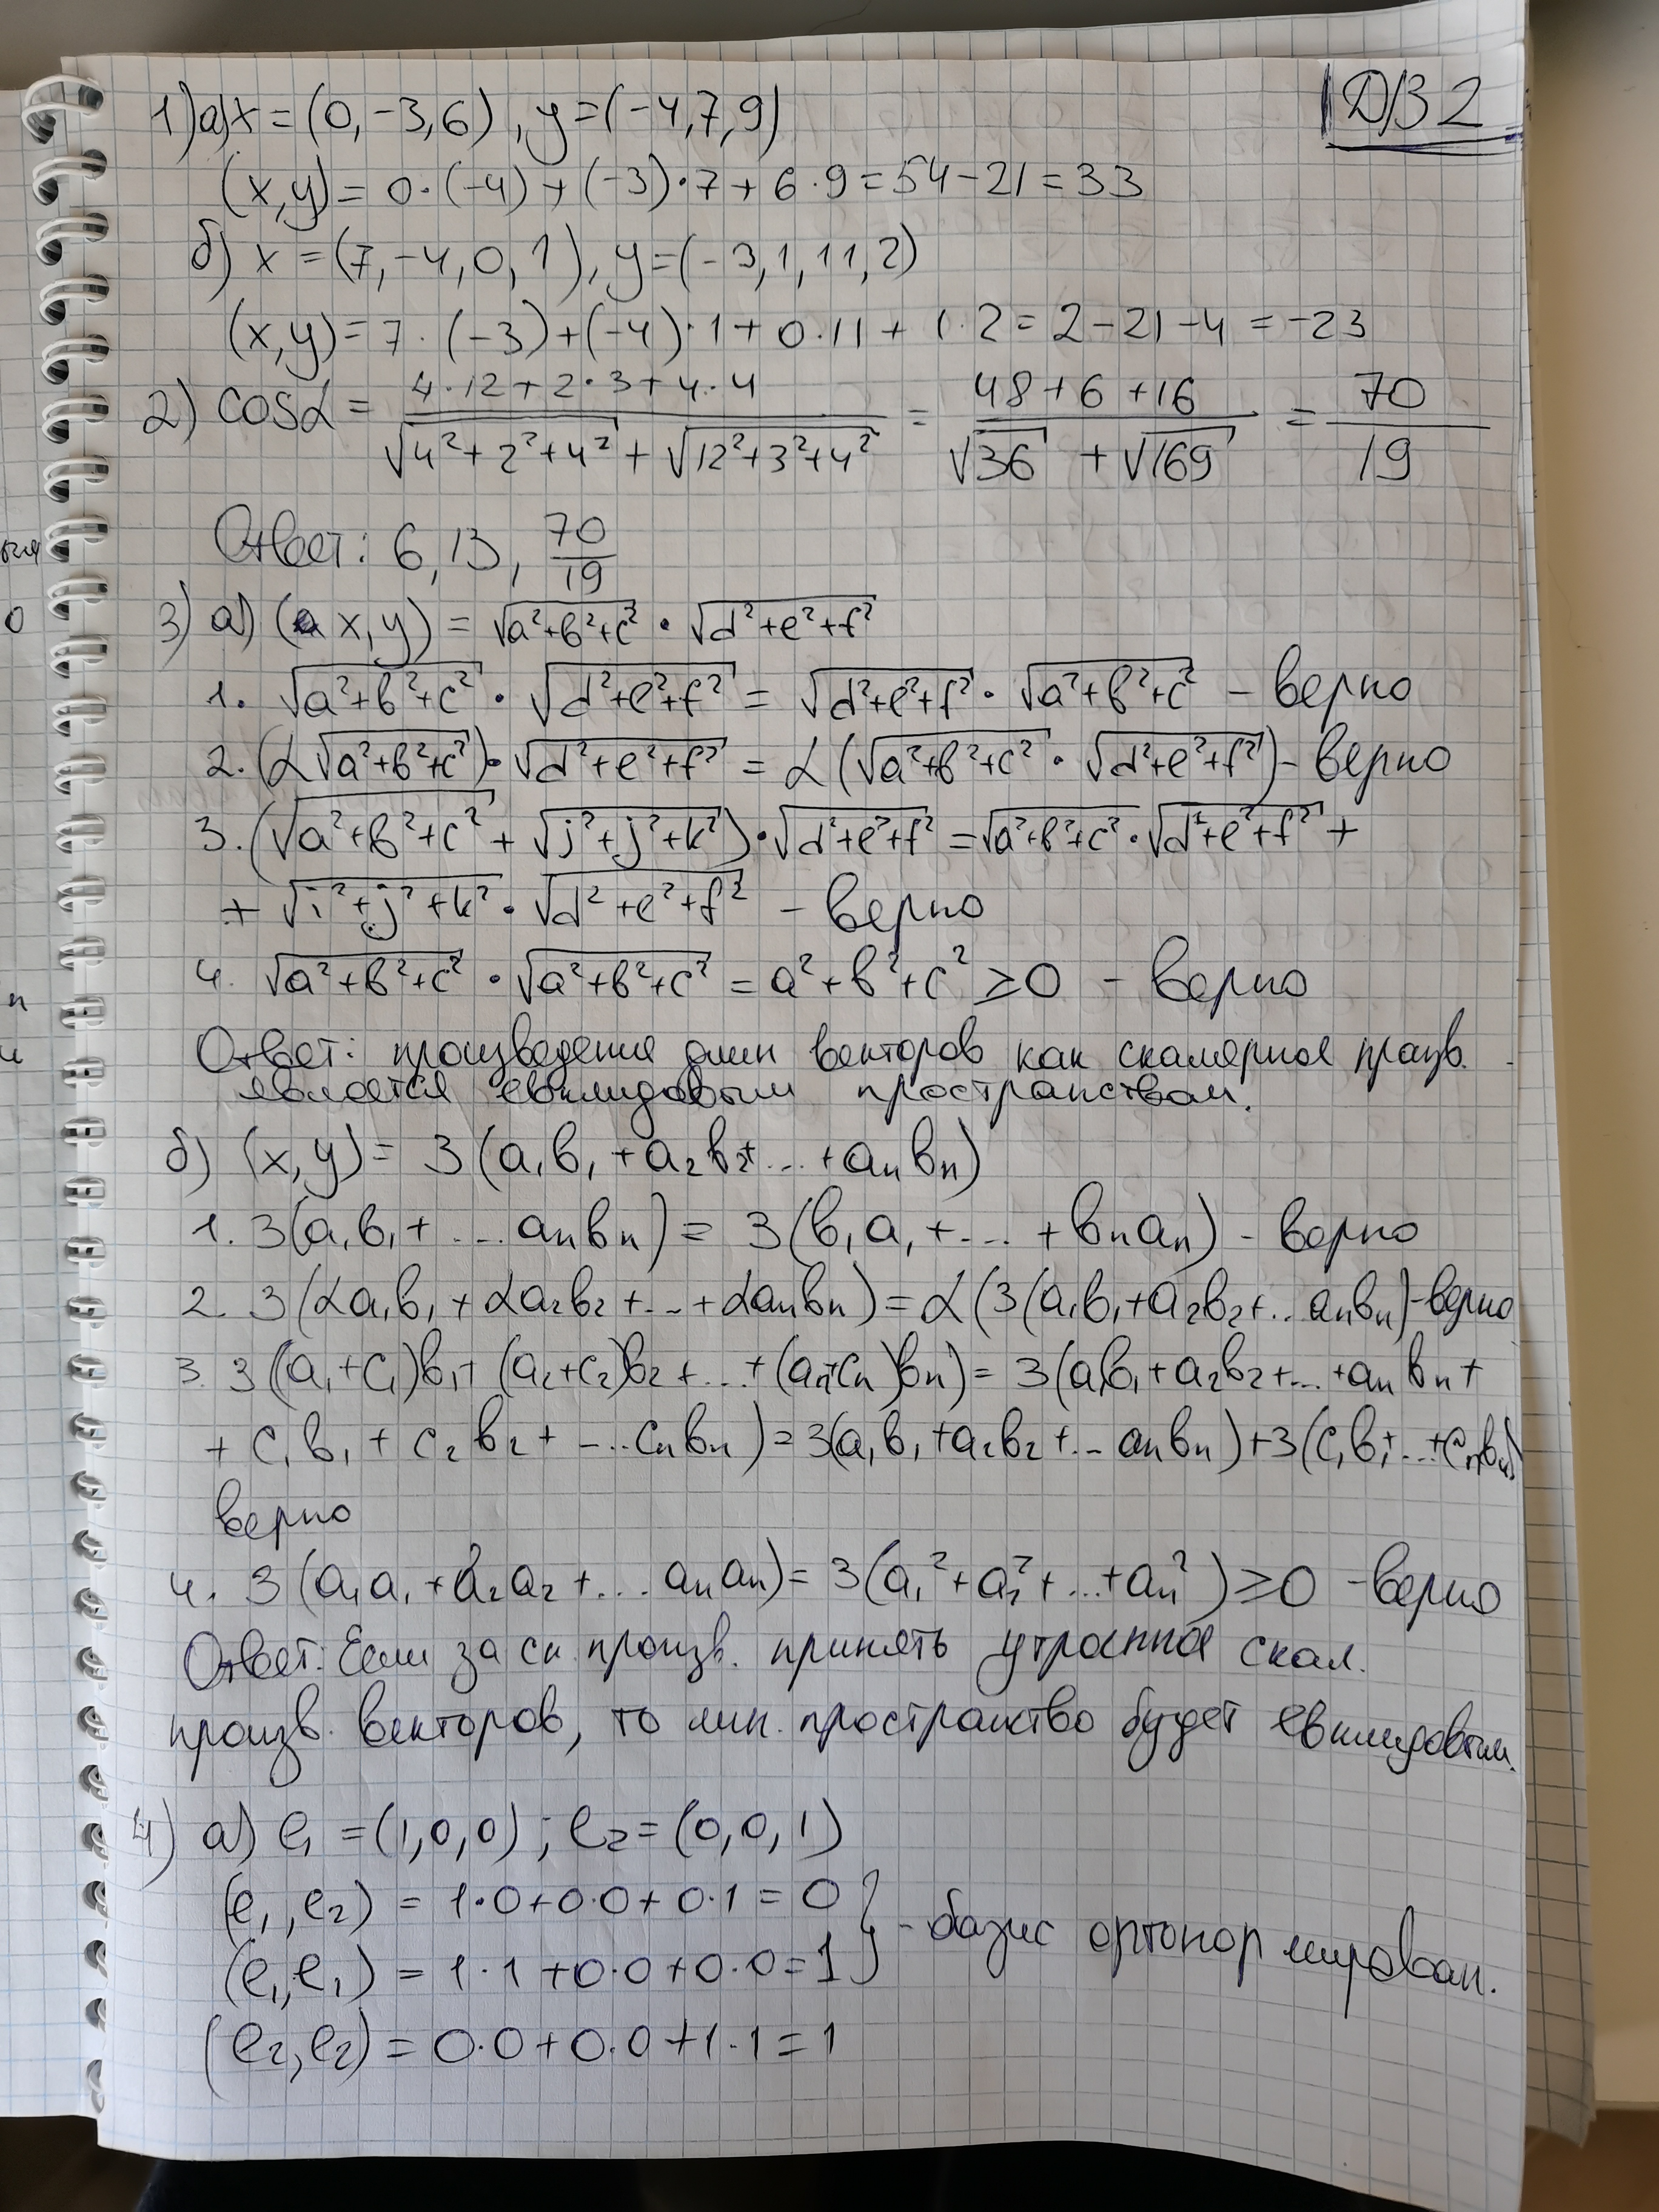 Д/З 2
1) а) x = (0, -3, 6), y = (-4, 7, 9)
(x, y) = 0·(-4) + (-3)·7 + 6·9 = 54 - 21 = 33
б) x = (7, -4, 0, 1), y = (-3, 1, 11, 2)
(x, y) = 7·(-3) + (-4)·1 + 0·11 + 1·2 = 2 - 21 - 4 = -23
2) cosα = (4·12 + 2·3 + 4·4)/(√(4²+2²+4²) + √(12²+3²+4²)) = (48 + 6 + 16)/(√36 + √169) = 70/19
Ответ: 6, 13, 70/19
3) а) (a x, y) = √(a²+b²+c²) · √(d²+e²+f²)
1. √(a²+b²+c²) · √(d²+e²+f²) = √(d²+e²+f²) · √(a²+b²+c²) - верно
2. (α√(a²+b²+c²))·√(d²+e²+f²) = α(√(a²+b²+c²) · √(d²+e²+f²)) - верно
3. (√(a²+b²+c²) + √(j²+j²+k²))·√(d²+e²+f²) = √(a²+b²+c²)·√(d²+e²+f²) +
+ √(i²+j²+k²) · √(d²+e²+f²) - верно
4. √(a²+b²+c²) · √(a²+b²+c²) = a²+b²+c² ≥ 0 - верно
Ответ: произведение длин векторов как скалярное произв.
является евклидовым пространством.
б) (x, y) = 3(a₁b₁ + a₂b₂ + ... + aₙbₙ)
1. 3(a₁b₁ + ... aₙbₙ) = 3(b₁a₁ + ... + bₙaₙ) - верно
2. 3(αa₁b₁ + αa₂b₂ + ... + αaₙbₙ) = α(3(a₁b₁ + a₂b₂ + ... aₙbₙ) - верно
3. 3((a₁+c₁)b₁ + (a₂+c₂)b₂ + ... + (aₙ+cₙ)bₙ) = 3(a₁b₁ + a₂b₂ + ... + aₙbₙ +
+ c₁b₁ + c₂b₂ + ... cₙbₙ) = 3(a₁b₁ + a₂b₂ + ... aₙbₙ) + 3(c₁b₁ + ... + cₙbₙ)
верно
4. 3(a₁a₁ + a₂a₂ + ... aₙaₙ) = 3(a₁² + a₂² + ... + aₙ²) ≥ 0 - верно
Ответ: Если за ск. произв. принять утроенное скал.
произв. векторов, то лин. пространство будет евклидовым.
4) а) e₁ = (1, 0, 0); e₂ = (0, 0, 1)
(e₁, e₂) = 1·0 + 0·0 + 0·1 = 0
(e₁, e₁) = 1·1 + 0·0 + 0·0 = 1 } - базис ортонормирован.
(e₂, e₂) = 0·0 + 0·0 + 1·1 = 1